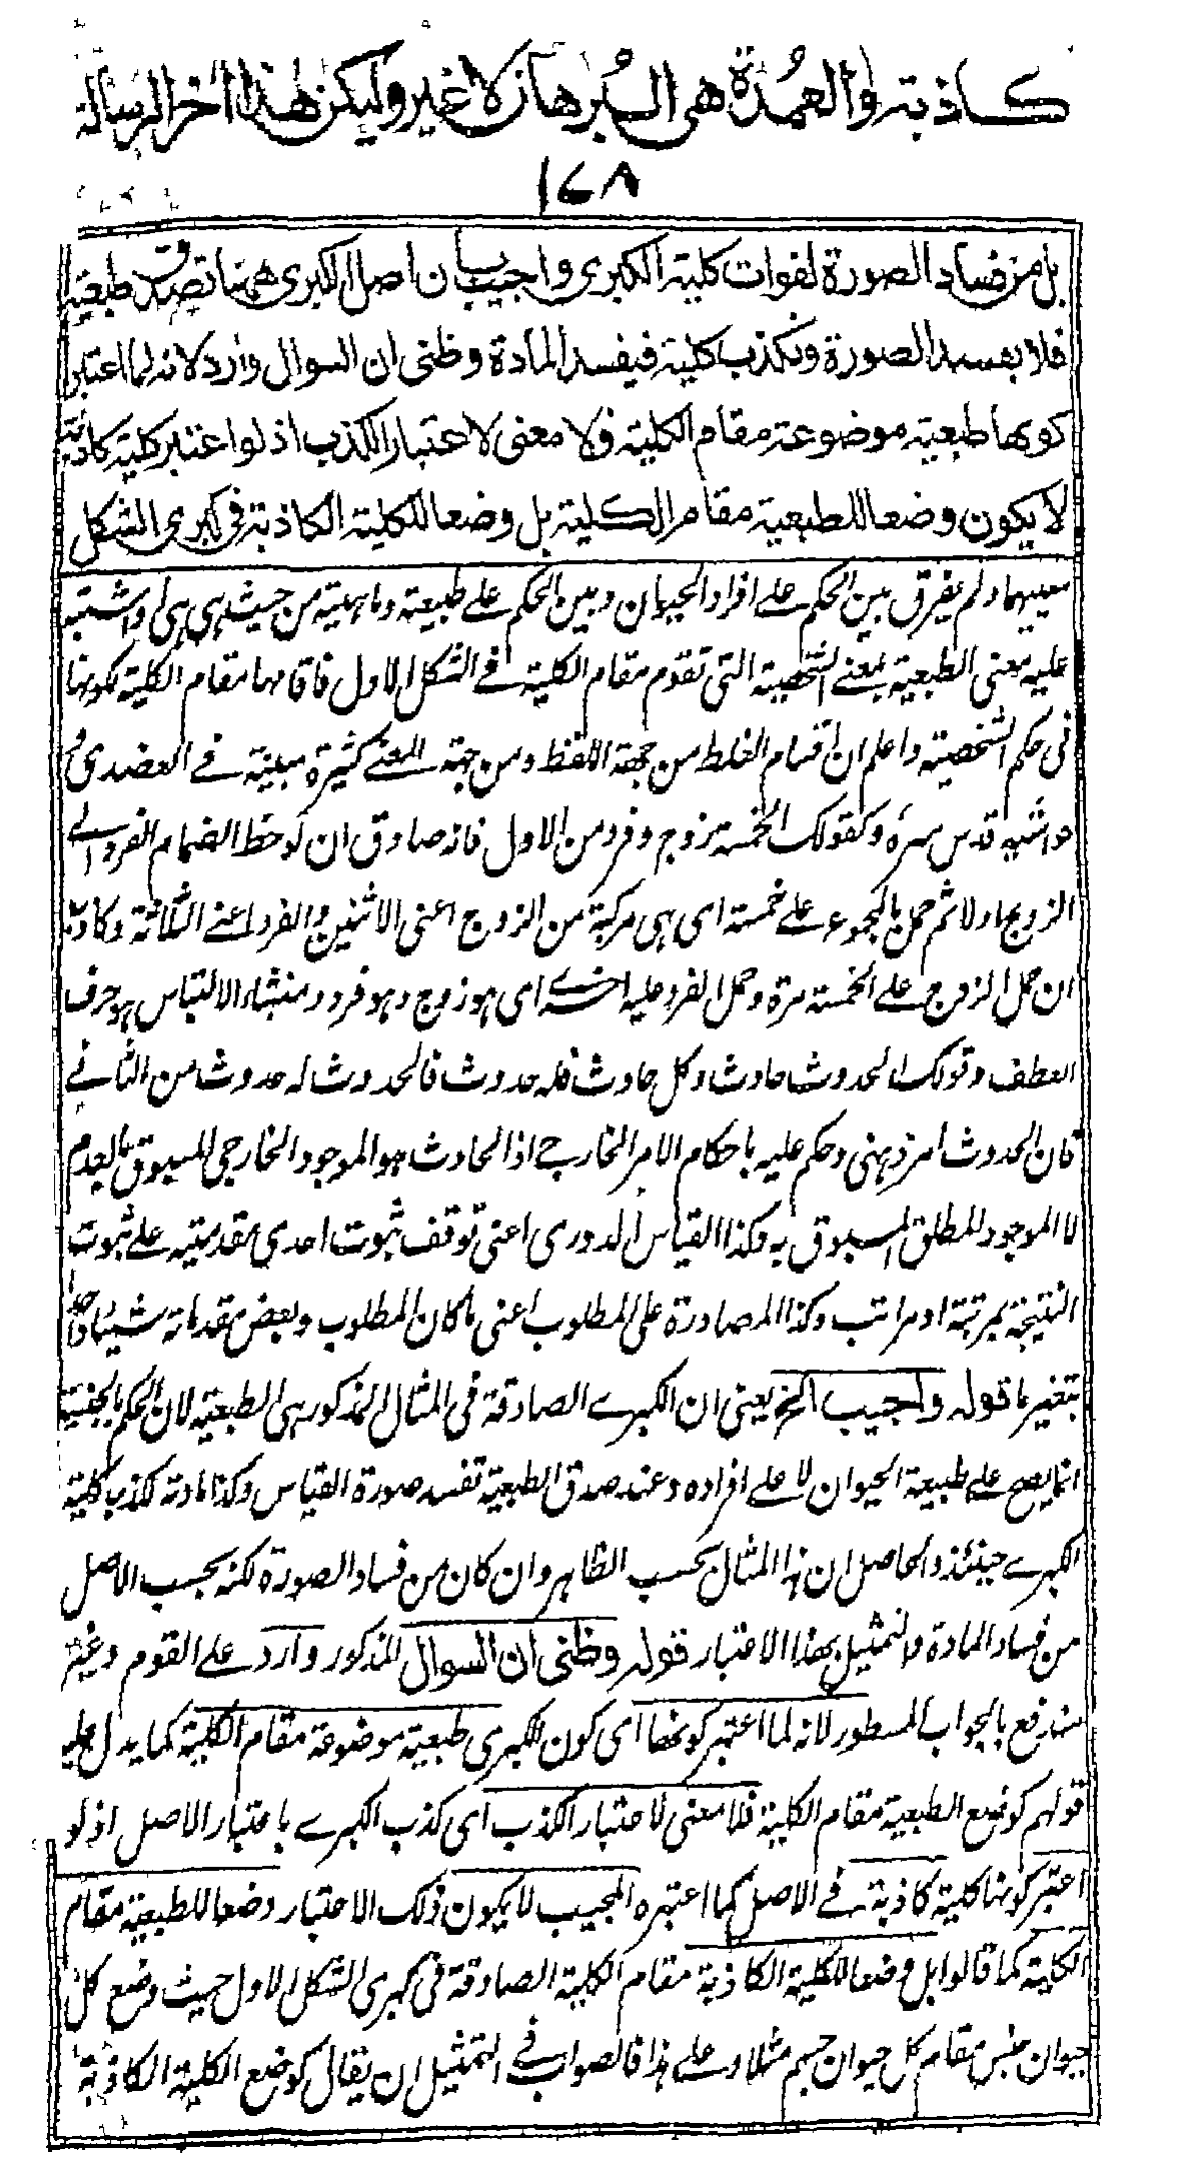 كاذبة والعمدة هي البرهان لا غير وليكن هذا آخر الرسالة
١٧٨
بل من فساد الصورة لفوات كلية الكبرى واجيب بان اصل الكبرى ههنا تصدق طبعية
فلا يفسد الصورة وتكذب كلية فيفسد المادة وظني ان السوال وارد لانه لما اعتبر
كونها طبعية موضوعة مقام الكلية فلا معنى لاعتبار الكذب اذ لو اعتبر كلية كاذبة
لا يكون وضعا للطبعية مقام الكلية بل وضعا للكلية الكاذبة في كبرى الشكل
بينهما ولم يفرق بين الحكم على افراد الحيوان وبين الحكم على طبيعة وماهية من حيث هي هي او اشتبه
عليه معنى الطبعية بمعنى الشخصية التي تقوم مقام الكلية في الشكل الاول فاقامها مقام الكلية لكونها
في حكم الشخصية واعلم ان اقسام الغلط من جهة اللفظ ومن جهة المعنى كثيرة مبينة في العضدي و
حواشيه قدس سره وكقولك الخمسة زوج وفرد من الاول فانه صادق ان لوحظ انضمام الفرد الى
الزوج اولا ثم حمل المجموع على خمسة اى هي مركبة من الزوج اعنى الاثنين والفرد اعنى الثلاثة وكاذب
ان حمل الزوج على الخمسة مرة وحمل الفرد عليه اخرى اى هو زوج وهو فرد ومنشاء الالتباس هو حرف
العطف وقولك الحدوث حادث وكل حادث فله حدوث فالحدوث له حدوث من الثاني
فان الحدوث امر ذهني وحكم عليه باحكام الامر الخارجي اذ الحادث هو الموجود الخارجي المسبوق بالعدم
لا الموجود المطلق المسبوق به وكذا القياس الدوري اعنى توقف ثبوت احدى مقدمتيه على ثبوت
النتيجة بمرتبة او مراتب وكذا المصادرة على المطلوب اعنى ما كان المطلوب وبعض مقدماته شيئا واحدا
بتغير ما قوله واجيب الخ يعني ان الكبرى الصادقة في المثال المذكور هي الطبعية لان الحكم بالجنسية
انما يصح على طبيعة الحيوان لا على افراده وعند صدق الطبعية تفسد صورة القياس وكذا مادته لكذب كلية
الكبرى حينئذ والحاصل ان هذا المثال بحسب الظاهر وان كان من فساد الصورة لكنه بحسب الاصل
من فساد المادة والتمثيل بهذا الاعتبار قوله وظني ان السوال المذكور وارد على القوم وغير
مندفع بالجواب المسطور لانه لما اعتبر كونها اى كون الكبرى طبعية موضوعة مقام الكلية كما يدل عليه
قولهم كوضع الطبعية مقام الكلية فلا معنى لاعتبار الكذب اى كذب الكبرى باعتبار الاصل اذ لو
اعتبر كونها كلية كاذبة في الاصل كما اعتبره المجيب لا يكون ذلك الاعتبار وضعا للطبعية مقام
الكلية كما قالوا بل وضعا للكلية الكاذبة مقام الكلية الصادقة في كبرى الشكل الاول حيث وضع كل
حيوان جنس مقام كل حيوان جسم مثلا وعلى هذا فالصواب في التمثيل ان يقال كوضع الكلية الكاذبة